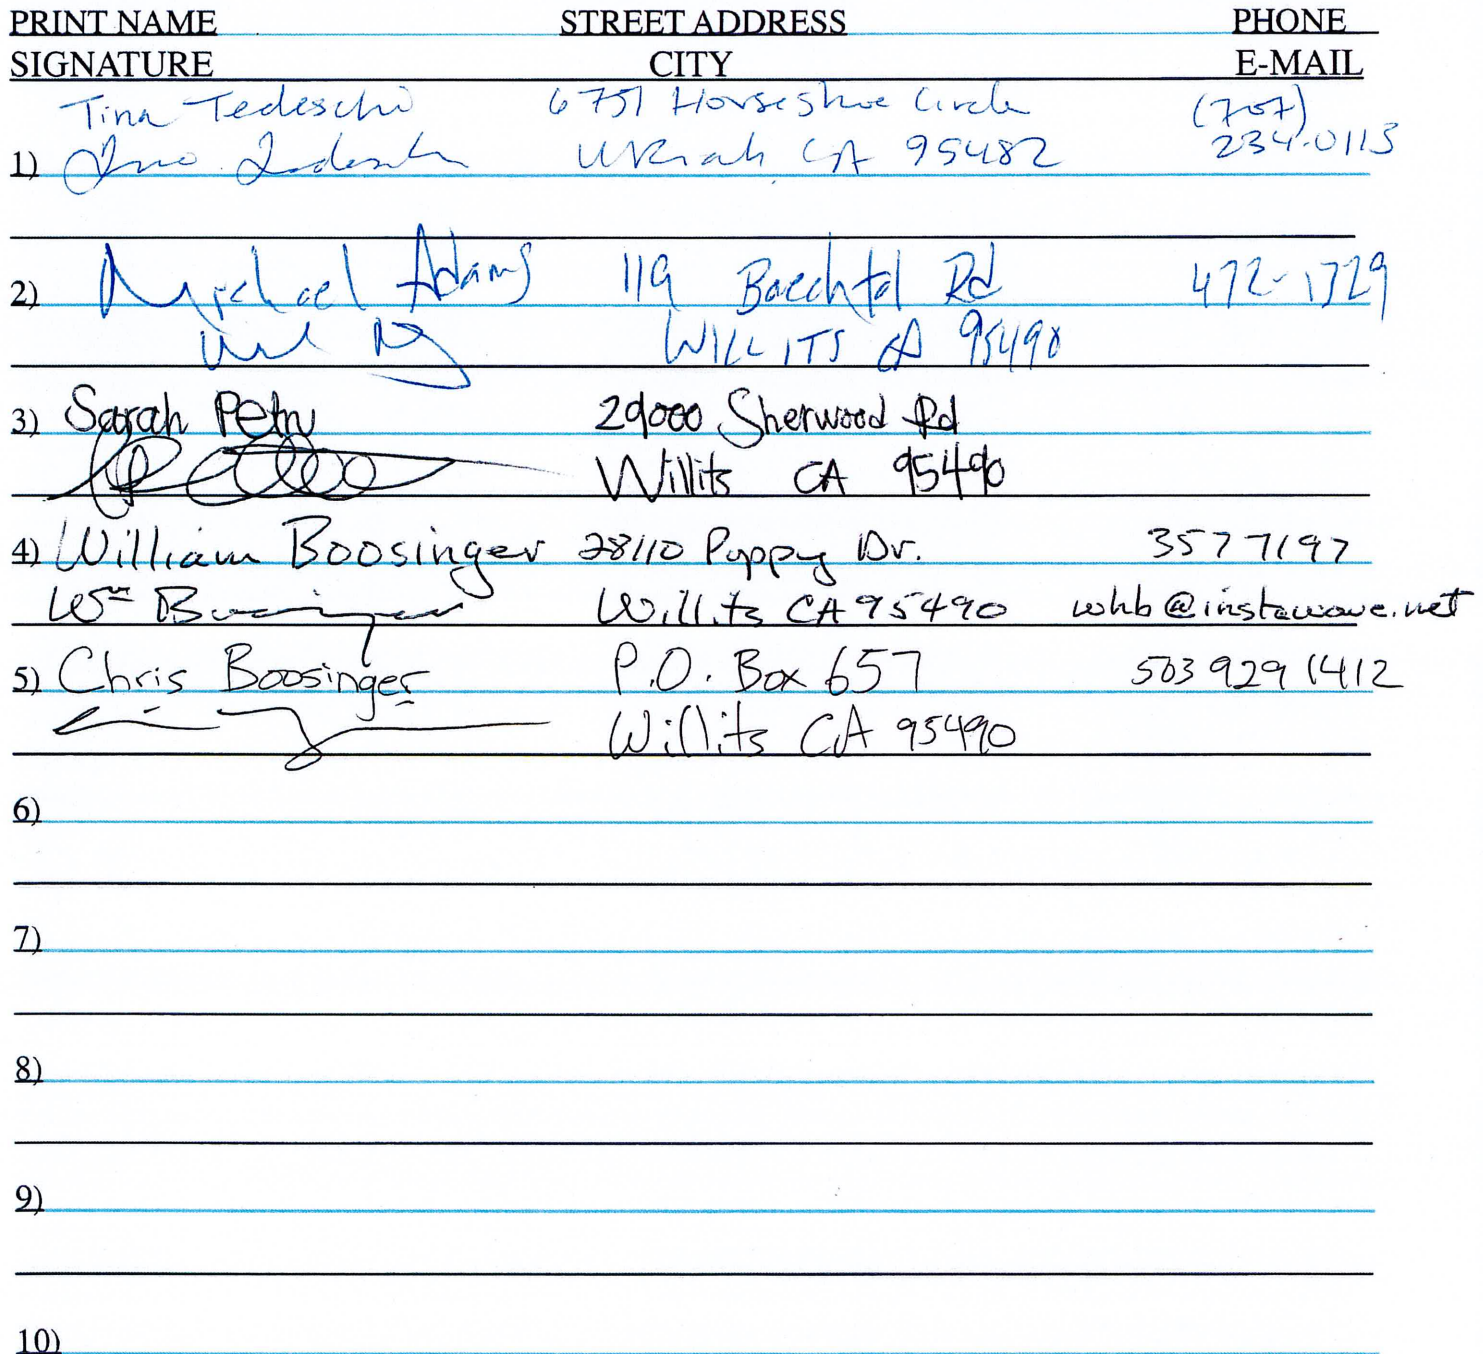 PRINT NAME STREET ADDRESS PHONE
SIGNATURE CITY E-MAIL
Tina Tedeschi 6751 Horseshoe Circle (707)
1) Ukiah CA 95482 234-0113
2) Michael Adams 119 Baechtel Rd 472-1729
WILLITS CA 95490
3) Sarah Petry 29000 Sherwood Rd
Willits CA 95490
4) William Boosinger 28110 Poppy Dr. 357 7197
Wm Boosinger Willits CA 95490 whb@instawave.net
5) Chris Boosinger P.O. Box 657 503 929 1412
Willits CA 95490
6)
7)
8)
9)
10)